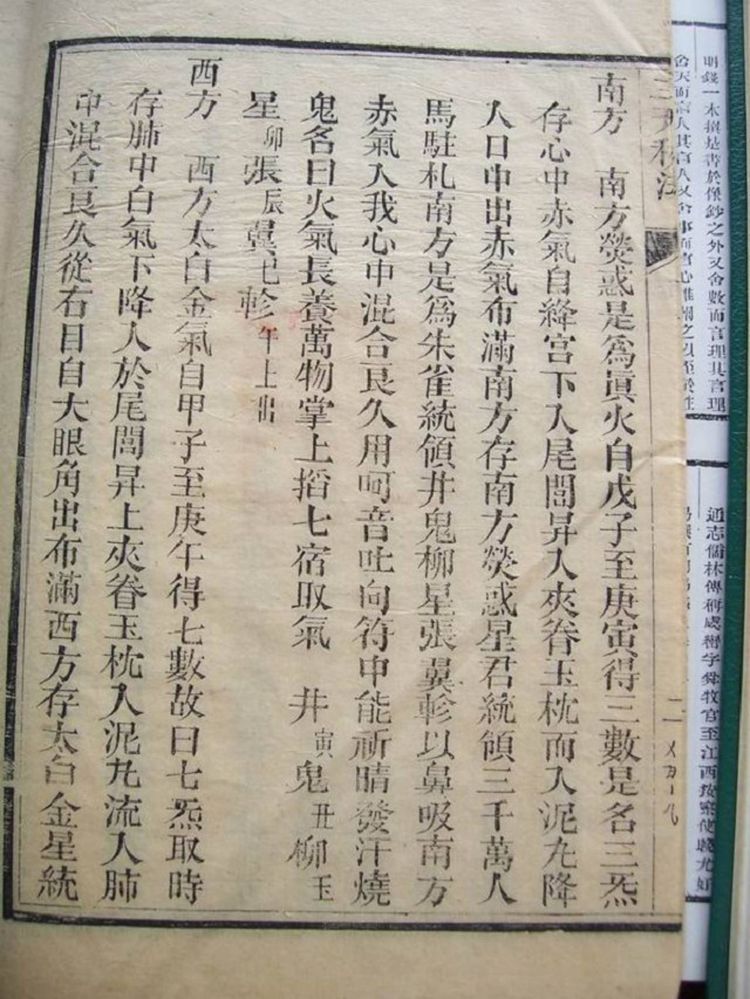 明錢一本撰是書於像鈔之外又舍數而言理其言理
舍天而言人其言人又舍事而言心推闡之以至於性
通志儒林傳稱成
字舜牧官至江西按察使
南方　南方熒惑是爲眞火自戊子至庚寅得三數是名三炁
存心中赤氣自絳宮下入尾閭昇入夾脊玉枕而入泥丸降
入口中出赤氣布滿南方存南方熒惑星君統領三千萬人
馬駐札南方是爲朱雀統領井鬼柳星張翼軫以鼻吸南方
赤氣入我心中混合良久用呵音吐向符中能祈晴發汗燒
鬼名曰火氣長養萬物掌上搯七宿取氣　井寅鬼丑柳玉
星卯張辰翼巳軫午上出
西方　西方太白金氣自甲子至庚午得七數故曰七炁取時
存肺中白氣下降入於尾閭昇上夾脊玉枕入泥丸流入肺
中混合良久從右目自大眼角出布滿西方存太白金星統